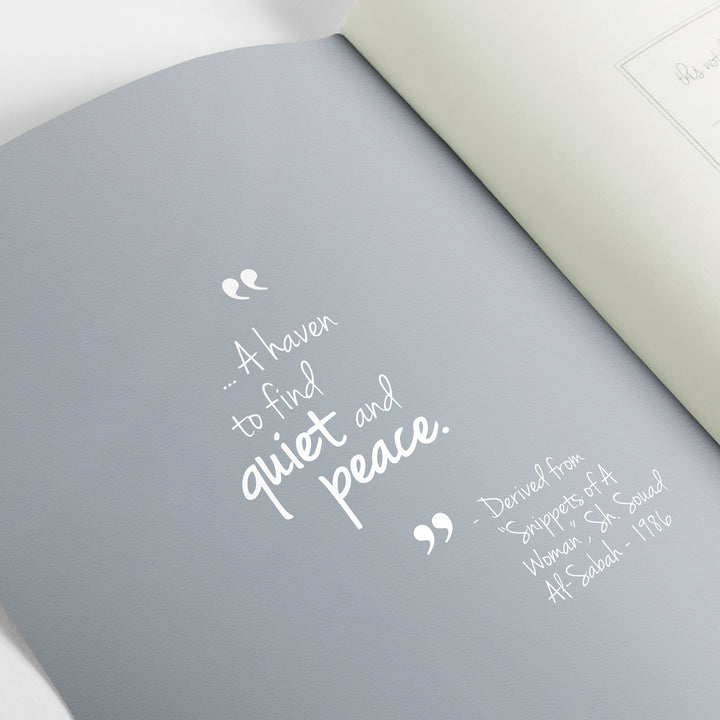 “
... A haven
to find
quiet and
peace.
”
- Derived from
"Snippets of A
Woman", Sh. Souad
Al-Sabah - 1986
this not